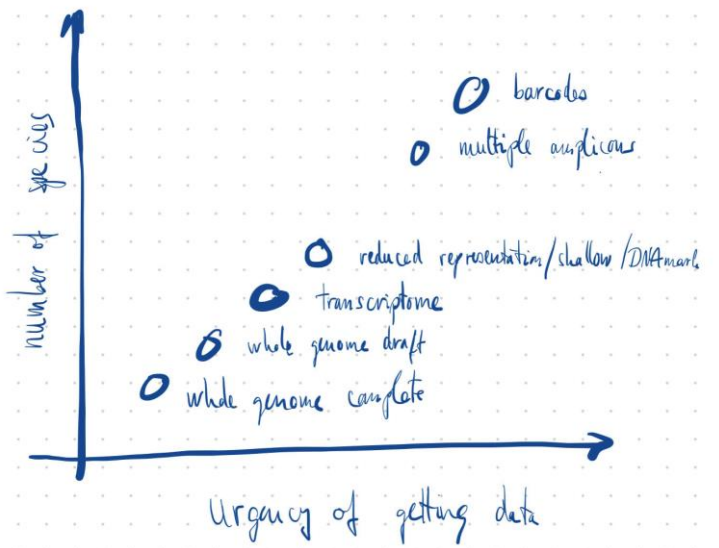 number of species
barcodes
multiple amplicons
reduced representation/shallow/DNAmark
transcriptome
whole genome draft
whole genome complete
Urgency of getting data